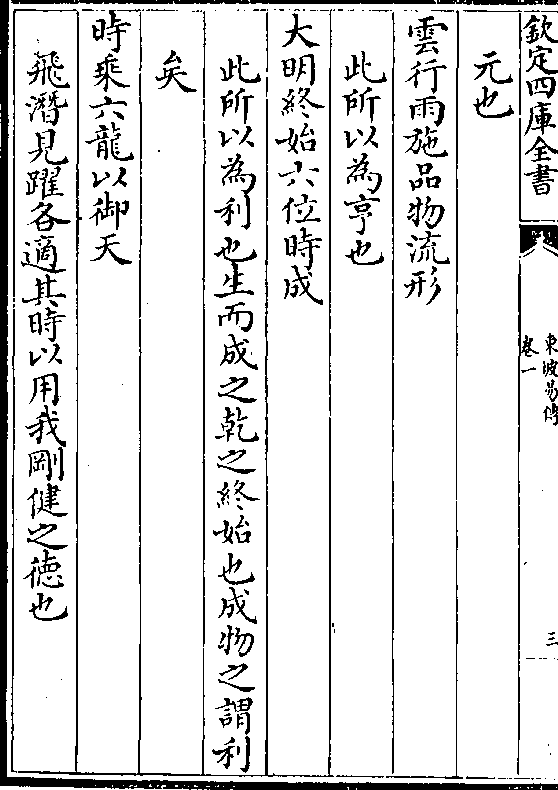 欽定四庫全書
東坡易傳
卷一
三
元也
雲行雨施品物流形
此所以為亨也
大明終始六位時成
此所以為利也生而成之乾之終始也成物之謂利
矣
時乘六龍以御天
飛潛見躍各適其時以用我剛健之德也